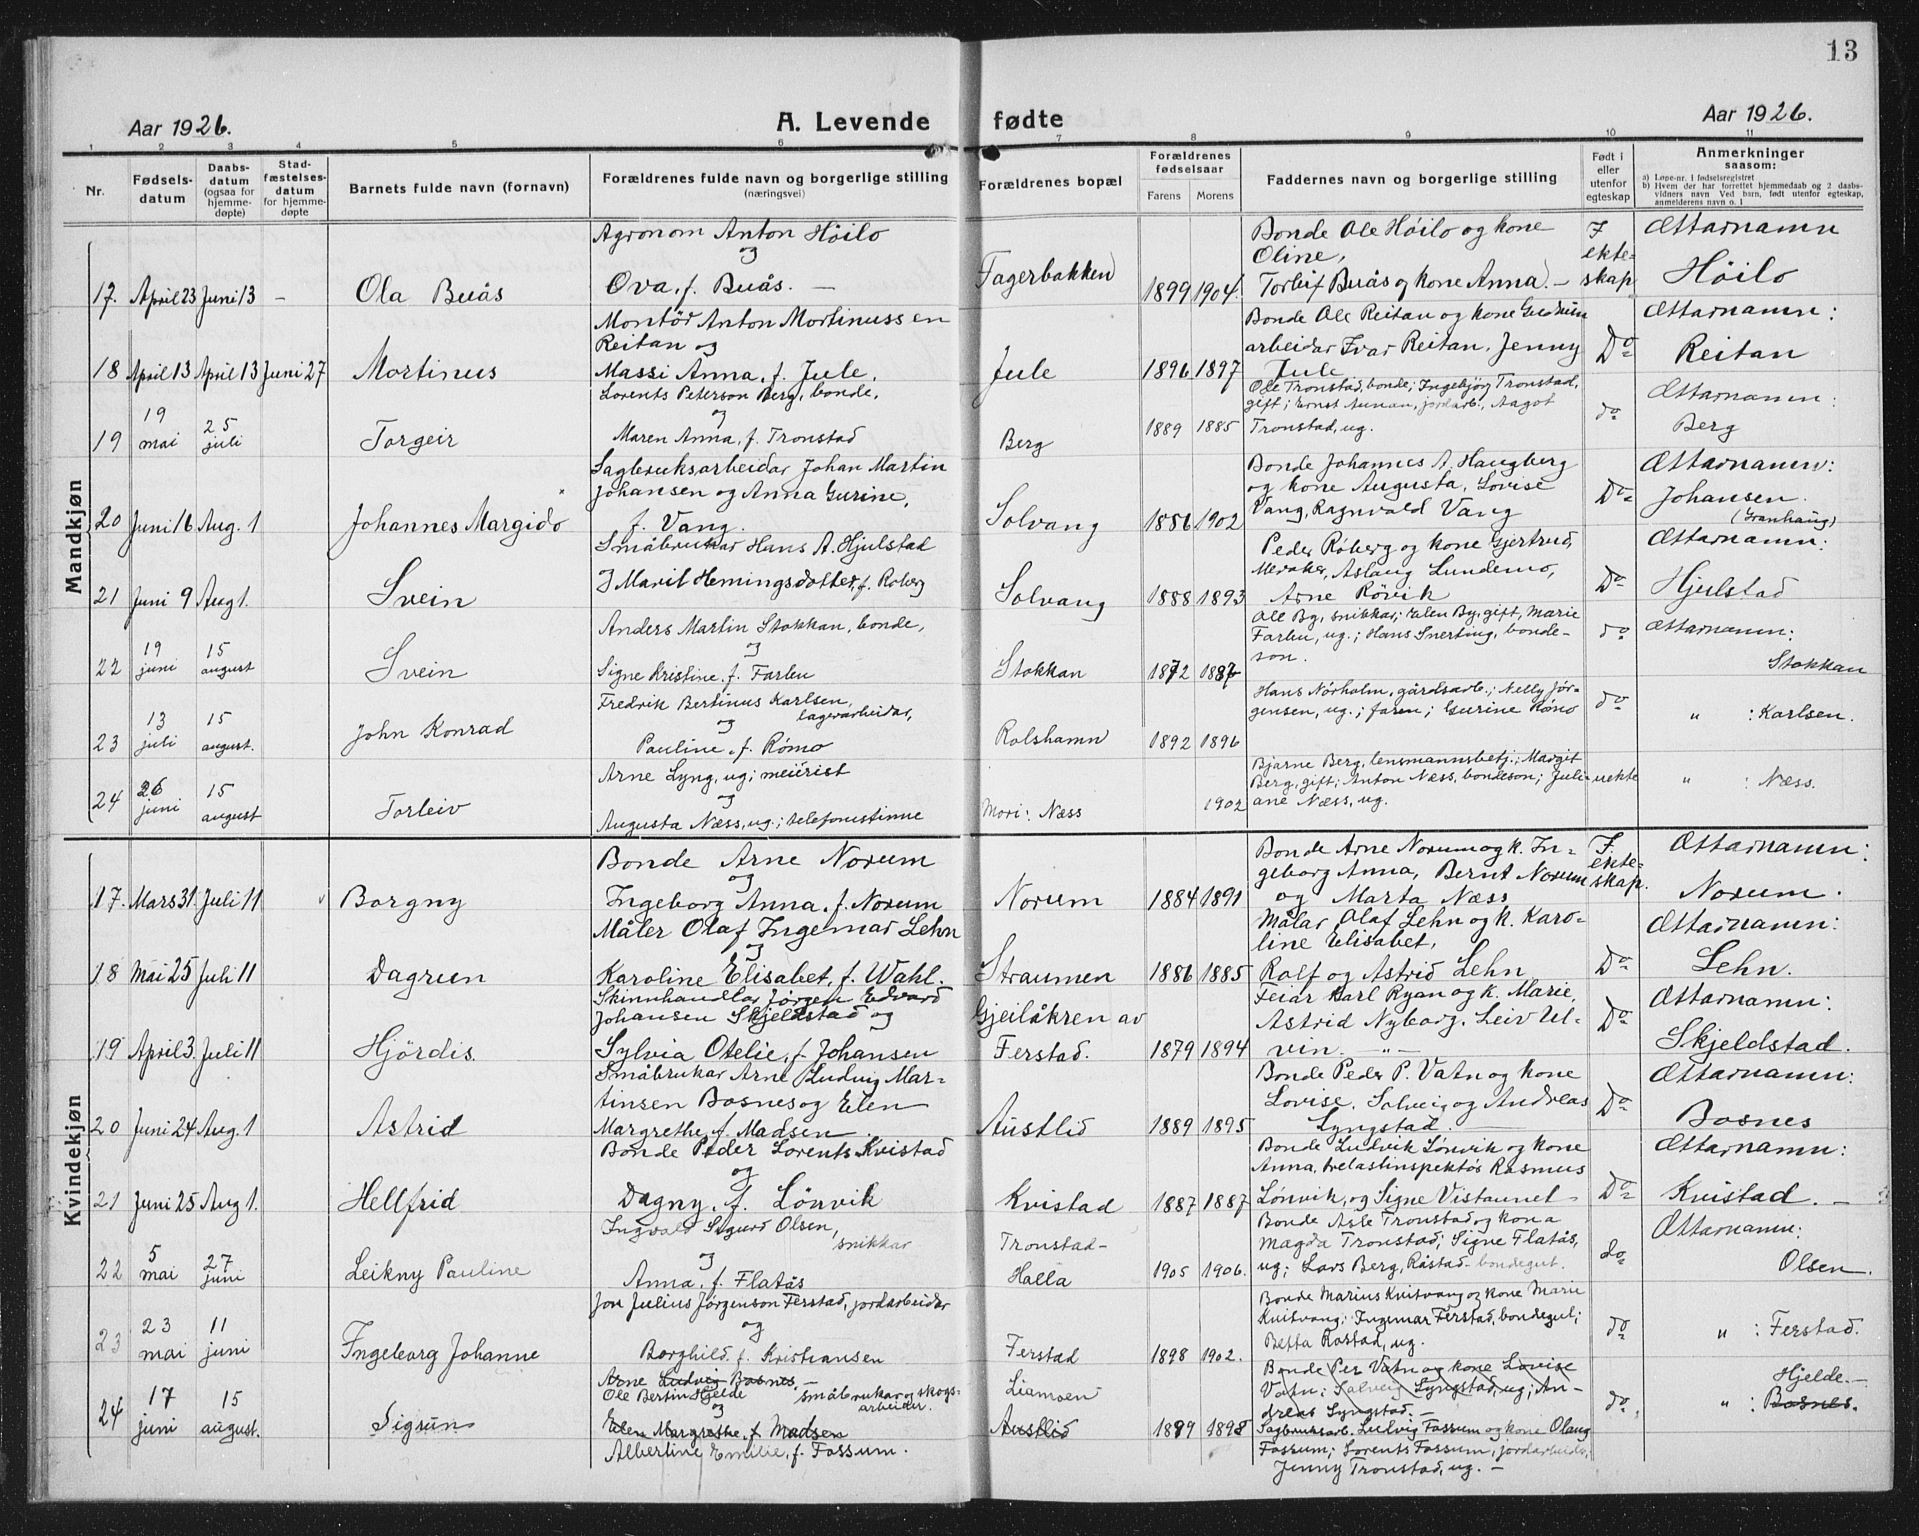 13
Aar 1926.
A. Levende fødte
Aar 1926.
1 2 3 4 5 6 7 8 9 10 11
Nr.
Fødsels-
datum
Daabs-
datum
(ogsaa for
hjemme-
døpte)
Stad-
fæstelses-
datum
for hjemme-
døpte
Barnets fulde navn (fornavn)
Forældrenes fulde navn og borgerlige stilling
(næringsvei)
Forældrenes bopæl
Forældrenes
fødselsaar
Farens Morens
Faddernes navn og borgerlige stilling
Født i
eller
utenfor
egteskap
Anmerkninger
saasom:
a) Løpe-nr. i fødselsregistret
b) Hvem der har forrettet hjemmedaab og 2 daabs-
vidners navn Ved barn, født utenfor egteskap,
anmelderens navn o. l
Mandkjøn
17. April 23 Juni 13 - Ola Buås
Agronom Anton Höilo
og
Ova, f. Buås. —
Fagerbakken 1899 1904.
Bonde Ole Höilo og kone
Oline,
Torleif Buås og kone Anna. -
I
ekte-
skap
Ættarnamn
Höilo
18 April 13 April 13 Juni 27 Mortinus
Montör Anton Mortinussen
Reitan og
Massi Anna, f. Jule.
Jule 1896 1897
Bonde Ole Reitan og kone Gudrun
arbeidar Ivar Reitan, Jenny
Jule
Do
Ættarnamn:
Reitan
19 19 mai 25 juli Torgeir
Lorents Peterson Berg, bonde,
og
Maren Anna, f. Tronstad
Berg 1889 1885
Ole Tronstad, bonde; Ingebjörg Tronstad,
gift; Ernst Aunan, jordarb., Aagot
Tronstad, ug.
do
Ættarnamn:
Berg
20 Juni 16 Aug. 1 Johannes Margido
Sagbruksarbeidar Johan Martin
Johansen og Anna Gurine,
f. Vang.
Solvang 1886 1902
Bonde Johannes A. Haugberg
og kone Augusta, Lovise
Vang, Ragnvald Vang
Do
Ættarnamn:
Johansen.
(Granhaug)
21 Juni 9 Aug 1. Svein
Småbrukar Hans A. Hjulstad
Marit Hemingsdotter, f. Roberg
Solvang 1888 1893
Peder Röberg og kone Gjertrud,
Meraker, Aslaug Lundemo,
Arne Rövik
Do
Ættarnamn:
Hjulstad
22 19 juni 15 august Svein
Anders Martin Stokkan, bonde,
og
Signe Kristine, f. Farlen
Stokkan 1872
Ole By, snikkar; Elen By, gift, Marie
Farlen, ug.; Hans Snerting, bonde-
son.
do
Ættarnamn:
Stokkan
23 13 juli 15 august. John Konrad
Fredrik Bertinus Karlsen,
lagerarbeidar,
og
Pauline, f. Römo
Rolshamn 1892 1896
Hans Nörholm, gårdsarb.; Nelly Jör-
gensen, ug.; faren; Gurine Römo
do
" : Karlsen.
24 26 juni 15 august Torleiv
Arne Lyng, ug; meierist
og
Augusta Næss, ug.; telefonistinne
Mori: Næss 1902
Bjarne Berg, lensmannsbetj.; Margit
Berg, gift; Anton Næss, bondeson; Juli-
ane Næss, ug.
uekte
" : Næss.
Kvindekjøn
17. Mars 31 Juli 11 Borgny
Bonde Arne Norum
og
Ingeborg Anna, f. Norum
Norum 1884 1891
Bonde Arne Norum og k. In-
geborg Anna, Bernt Norum
og Marta Næss
I
ekte-
skap.
Ættarnamn:
Norum.
18 Mai 25 Juli 11 Dagrun
Måler Olaf Ingemar Lehn
og
Karoline Elisabet, f. Wahl.
Straumen 1886 1885
Målar Olaf Lehn og k. Karo-
line Elisabet,
Rolf og Astrid Lehn
Do
Ættarnamn:
Lehn.
19 April 3. Juli 11 Hjördis.
Skinnhandlar Jörgen Edvard
Johansen Skjeldstad og
Sylvia Otelie, f. Johansen
Gjeilåkren av
Ferstad. 1879 1894
Feiar Karl Ryan og k. Marie,
Astrid Nyborg. Leiv Ul-
vin. — " —
Do
Ættarnamn:
Skjeldstad.
20 Juni 24 Aug. 1 Astrid
Småbrukar Arne Ludvig Mar-
tinsen Bosnes og Elen
Margrethe, f. Madsen.
Austlid 1889 1895
Bonde Peder P. Vatn og kone
Lovise. Solveig og Andreas
Lyngstad.
Do
Ættarnamn:
Bosnes
21 Juni 25 Aug 1. Hellfrid
Bonde Peder Lorents Kvistad
og
Dagny, f. Lönvik
Kvistad 1887 1887
Bonde Ludvik Lönvik og kone
Anna, Belastinspektör Rasmus
Lönvik, og Signe Vistaunet
Do
Ættarnamn:
Kvistad. -
22 5 mai 27 juni Leikny Pauline
Ingvald Sigurd Olsen,
snikkar
og
Anna, f. Flatås
Tronstad-
Halla 1905 1906.
Bonde Asle Tronstad og kona
Magda Tronstad; Signe Flatås,
ug; Lars Berg, Råstad - bondegut.
do
Ættarnamn:
Olsen.
23 23 mai 11 juni Ingeborg Johanne
Jon Julius Jörgenson Ferstad, jordarbeidar
og
Borghild, f. Kristiansen
Ferstad 1898 1902.
Bonde Marius Kvitvang og kone Marie
Kvitvang; Ingemar Ferstad, bondegut;
Betta Rostad, ug.
do
" : Ferstad.
24 17 juni 15 august. Sigrun
Arne Ludvig Bosnes. -
Ole Bertin Hjelde småbrukar og skogs-
arbeider.
og
Elen Margrethe, f. Madsen
Albertine Emilie, f. Fossum.
Liamoen
Austlid
Bonde Per Vatn og kone Lovise
Vatn; Solveig Lyngstad, ug; An-
dreas Lyngstad. -
Sagbruksarb. Ludvig Fossum og kone Olaug
Fossum; Lorents Fossum, jordarbeidr,
Jenny Tronstad, ug. -
do
Hjelde. -
" : Bosnes.